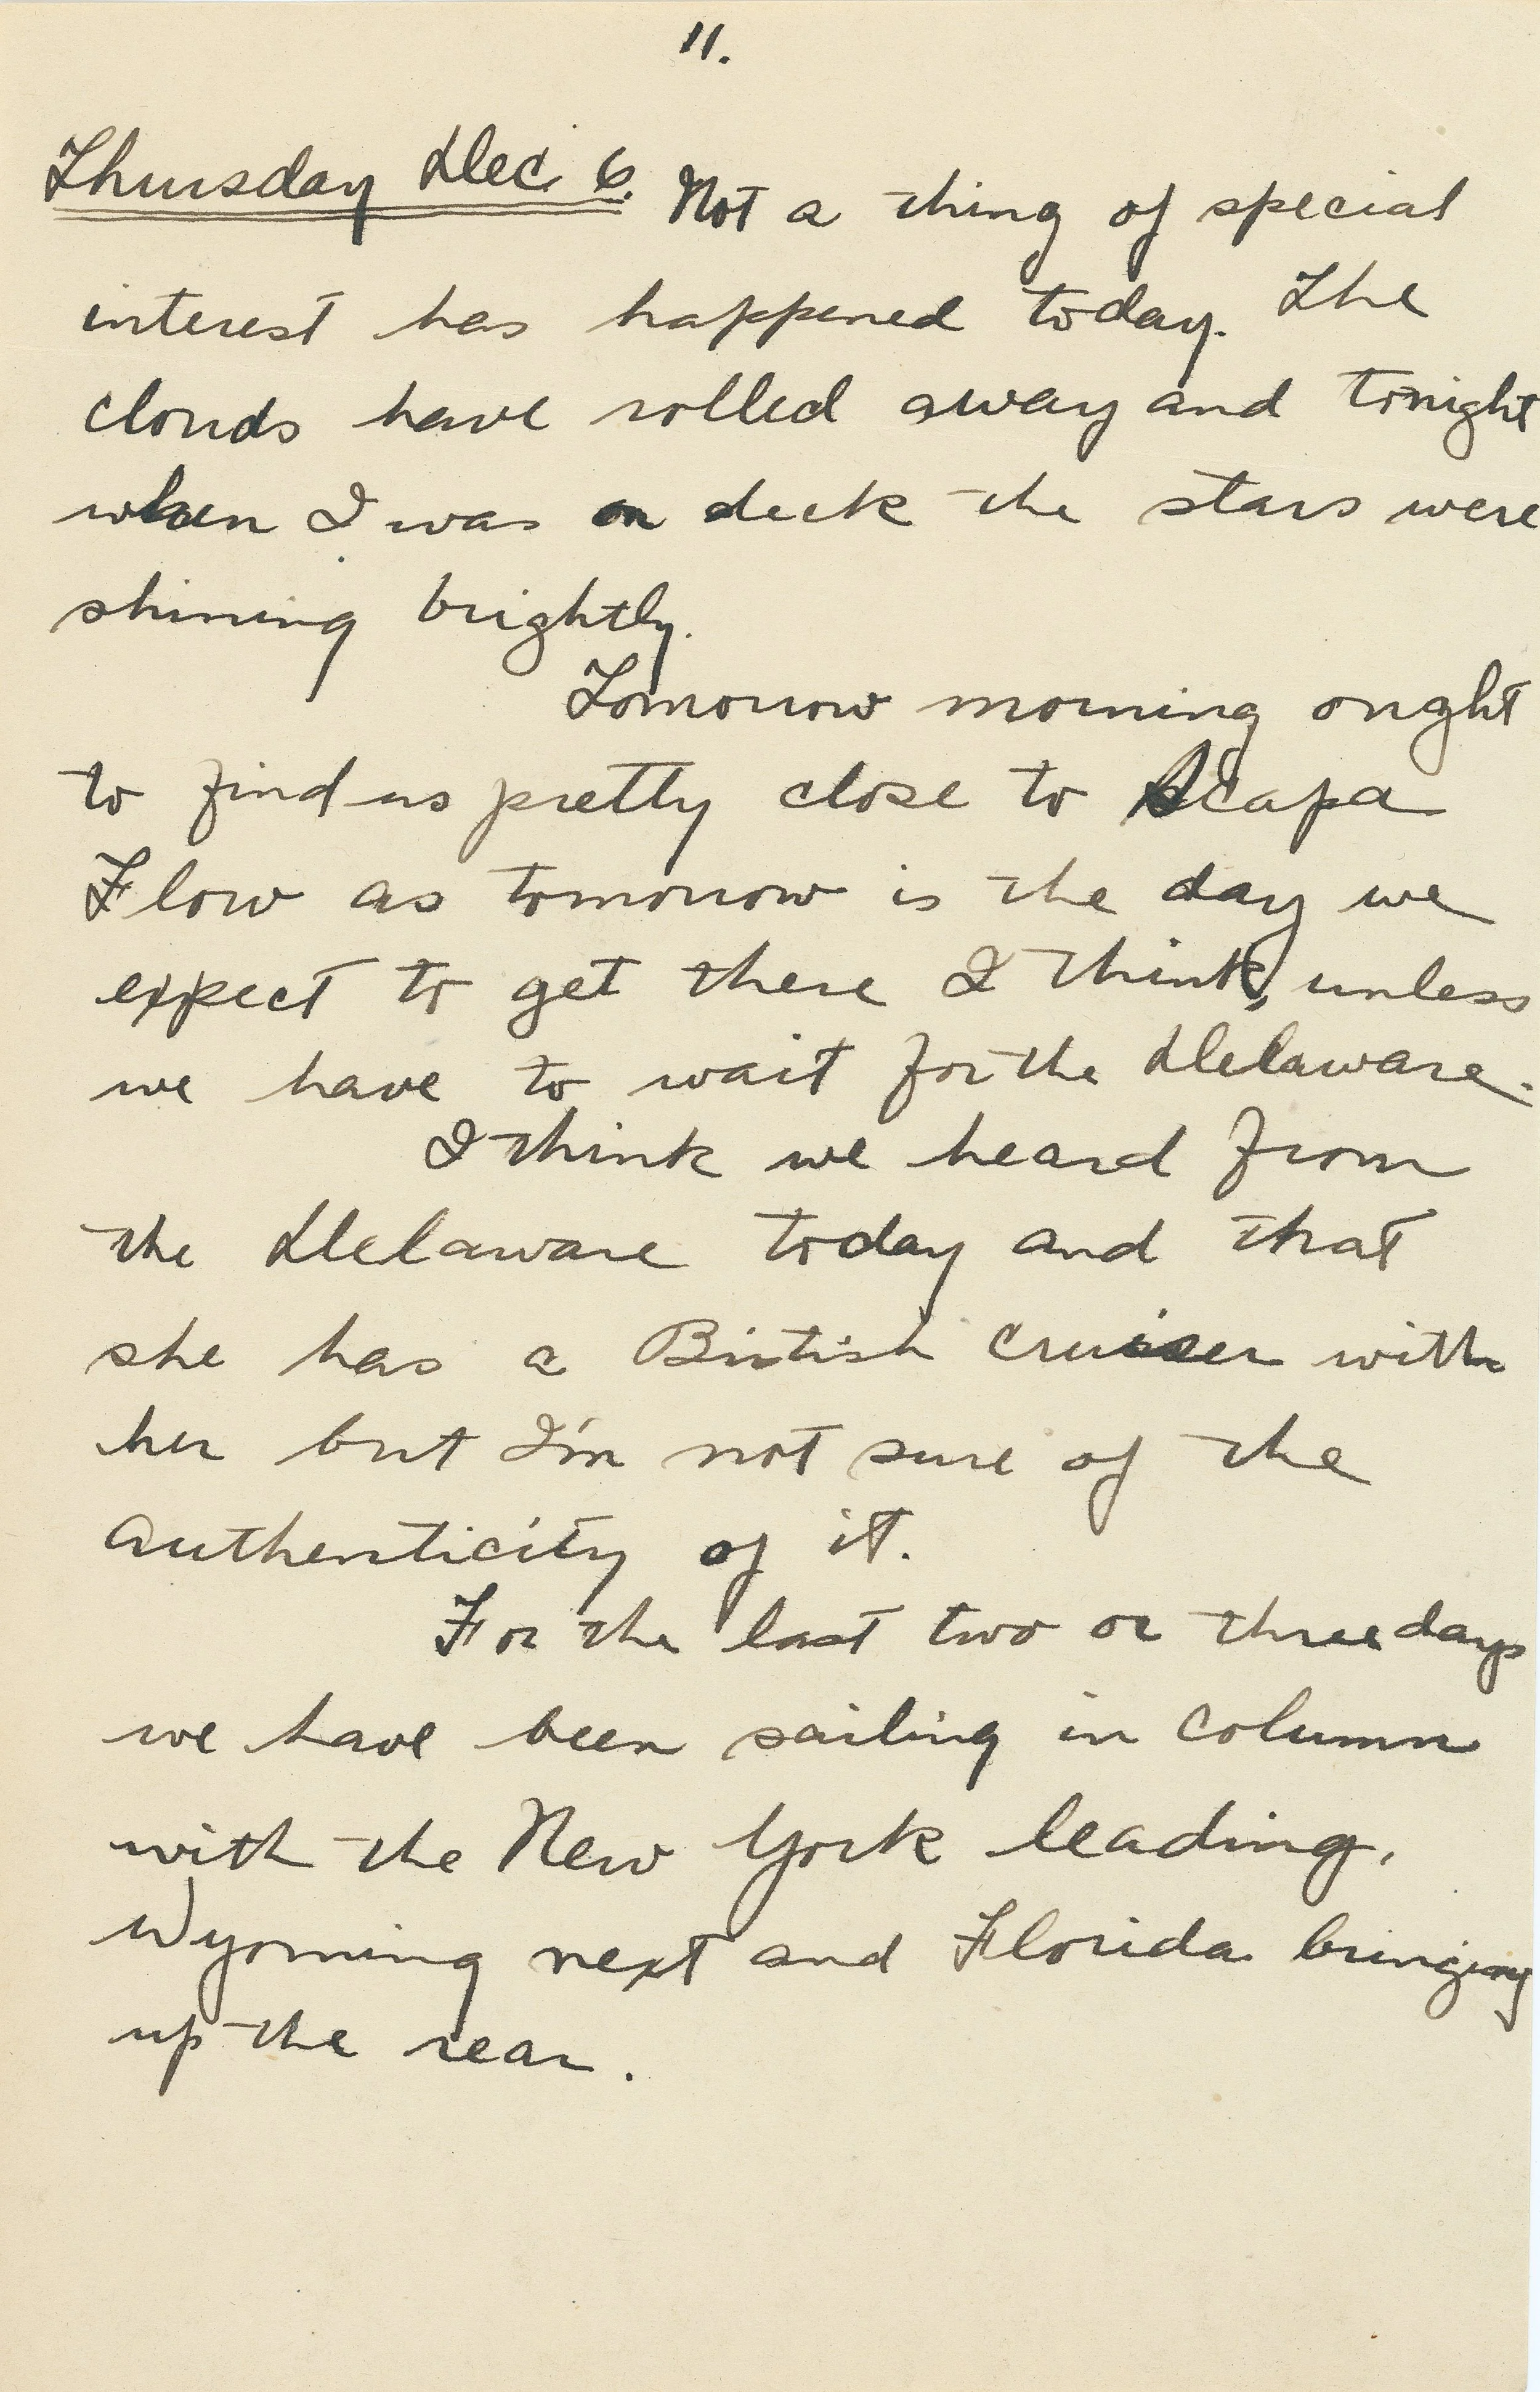 11.
Thursday Dec. 6. Not a thing of special
interest has happened today. The
clouds have rolled away and tonight
when I was on deck the stars were
shining brightly.
Tomorrow morning ought
to find us pretty close to Scapa
Flow as tomorrow is the day we
expect to get there I think, unless
we have to wait for the Delaware.
I think we heard from
the Delaware today and that
she has a British cruiser with
her but I'm not sure of the
authenticity of it.
For the last two or three days
we have been sailing in column
with the New York leading,
Wyoming next and Florida bringing
up the rear.